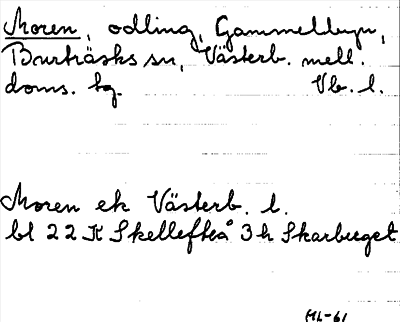 Moren, odling, Gammelbyn,
Burträsks sn, Västerb. mell.
doms. tg. Vb. l.
Moren ek Västerb. l.
bl 22 K Skellefteå 3 h Skarberget
HL-61